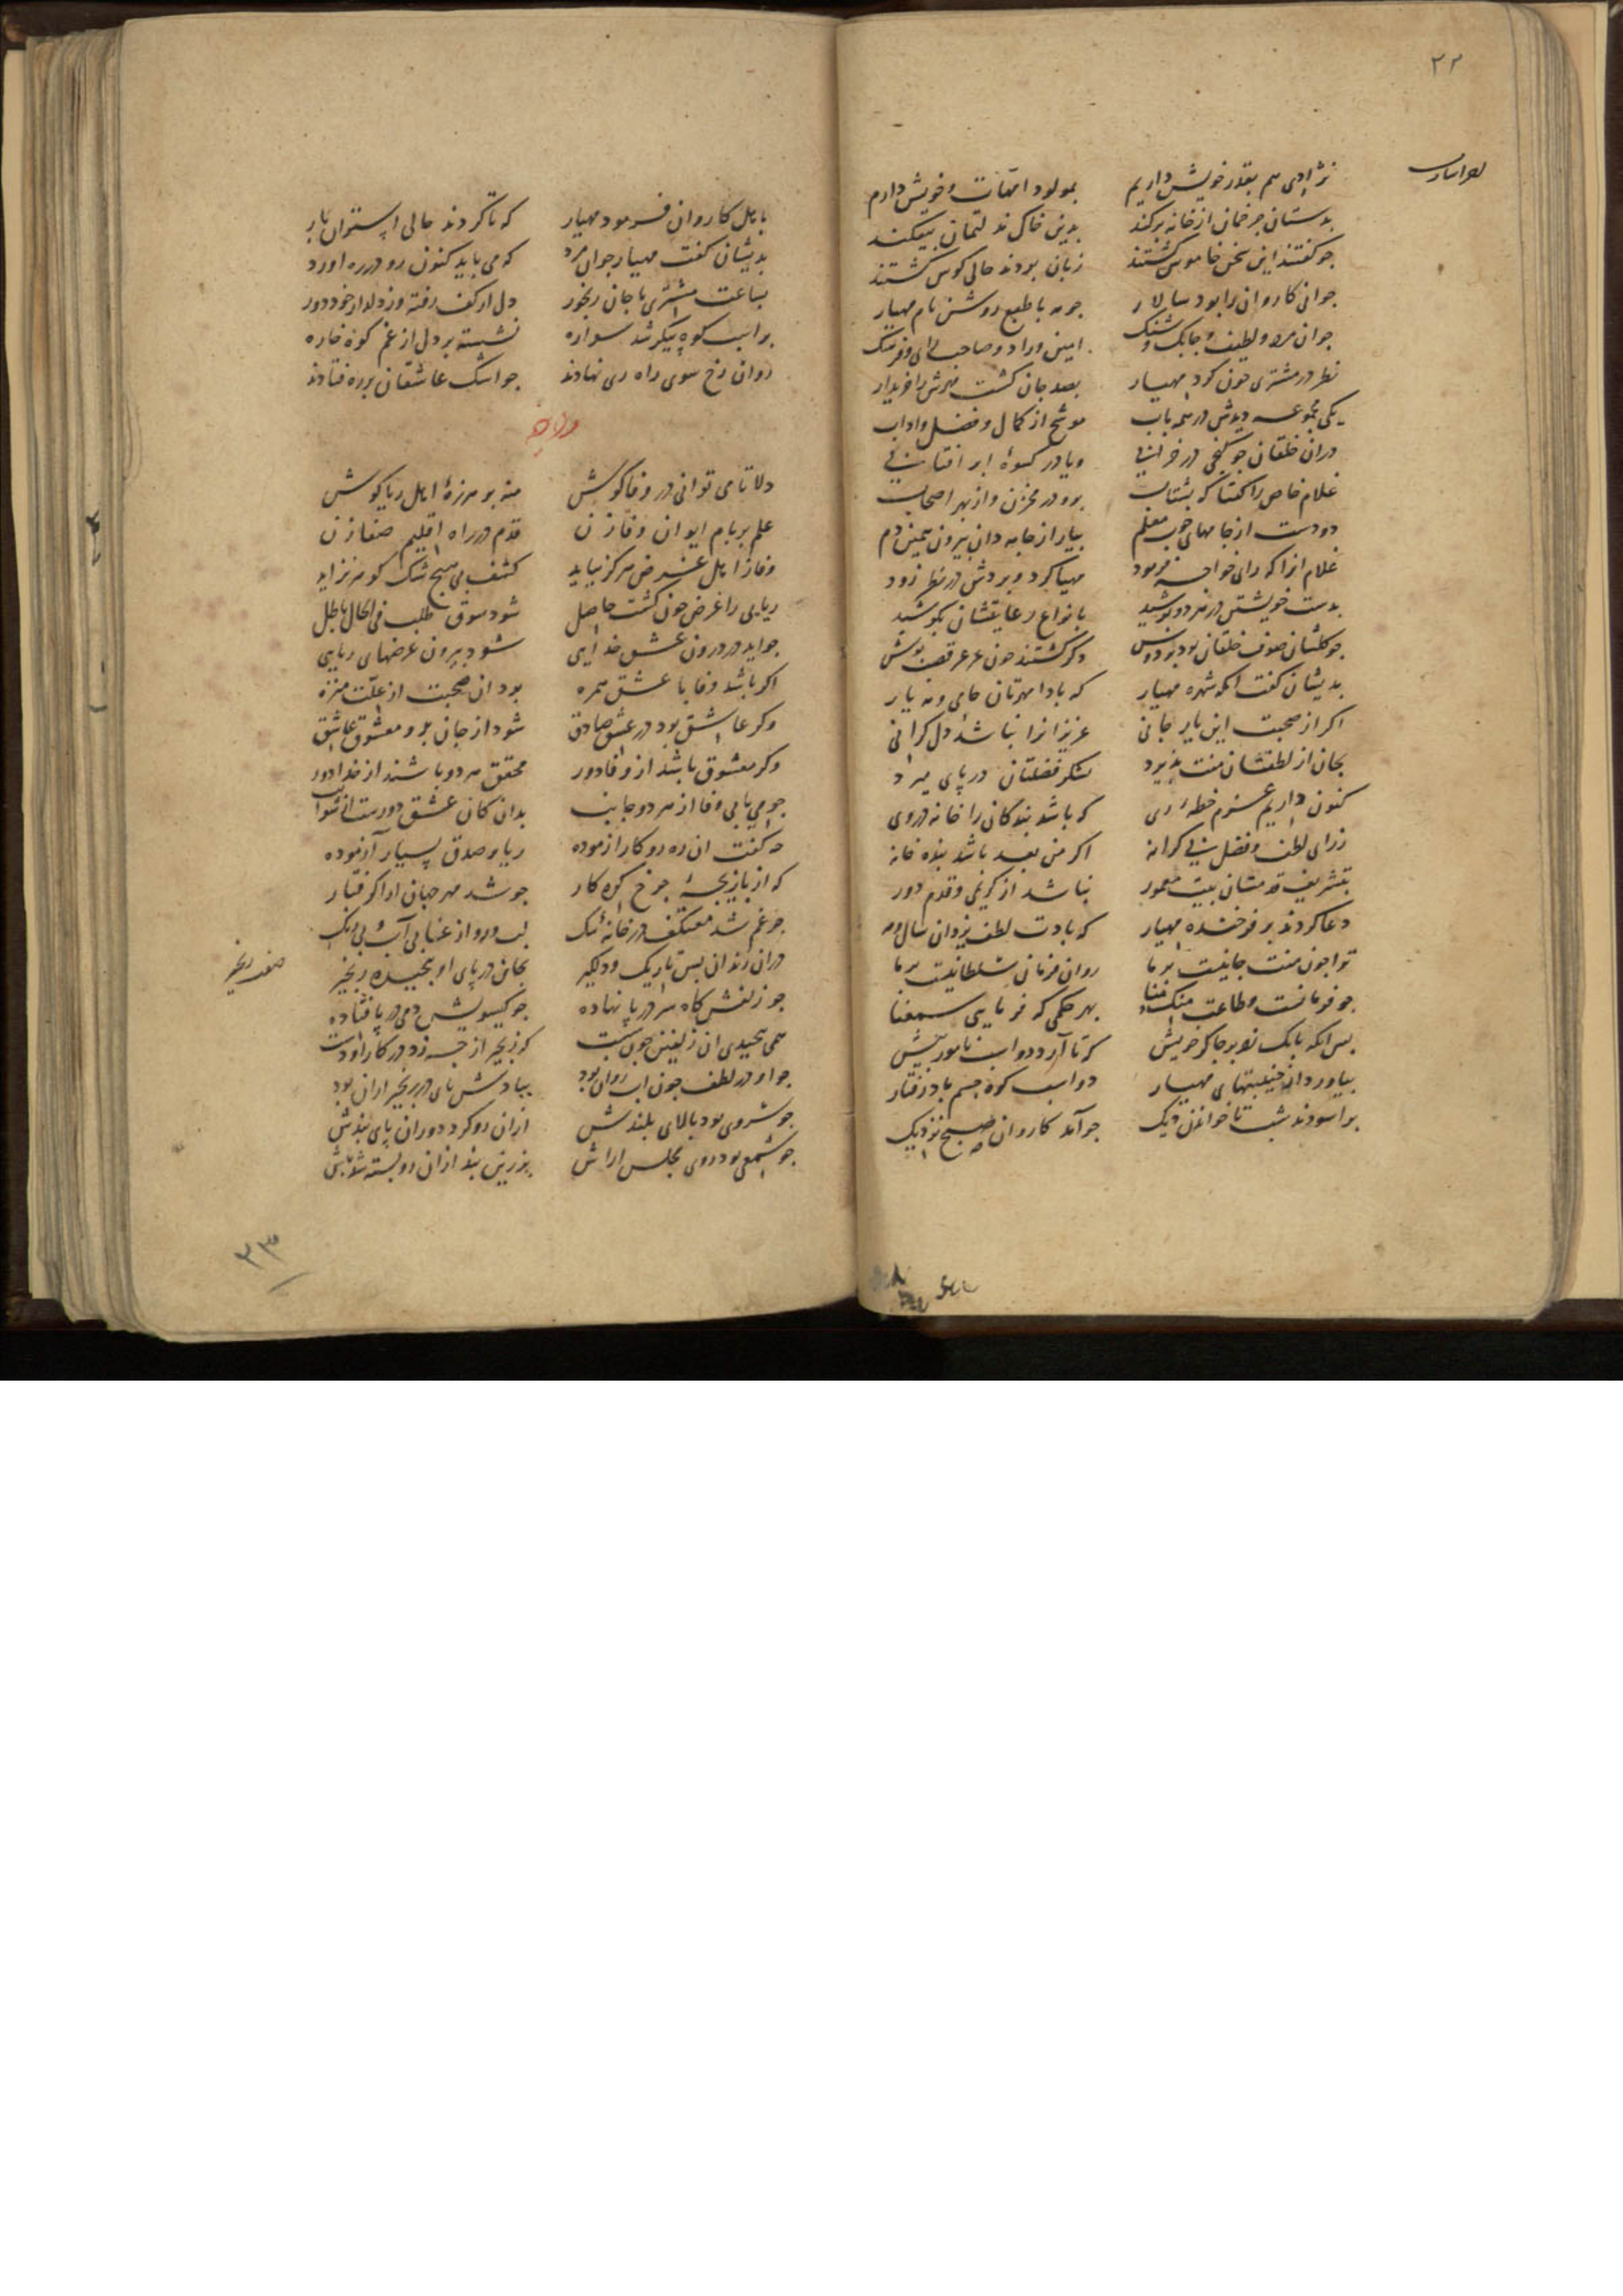 ۲۲
نژادی هم بقدر خویش داریم بمولود امهات و خویش دارم
بدستان چرخمان از خانه برکند بدین خاک
جو کفتند این سخن خاموش کشتند زبان بودند حالی کوش کشتند
جوانی کاروان را بود سالار جو مه با طبع روشن نام مهیار
جوان مرد و لطیف و جابک و شنک امین و راد و صاحب رای و فرهنک
نظر در مشتری جون کرد مهیار بصد جان کشت مهرش را خریدار
یکی مجموعه دیدش در همه باب موشح از کمال و فضل و اداب
دران خلقان جو کنجی در خرابی و یا در کسوهٔ ابر افتابی
غلام خاص را کفتا که بشتاب برو در مخزن و از بهر اصحاب
دو دست از جامهای خوب معلم بیار از جامه دان بیرون همین دم
غلام انرا که رای خواجه فرمود مهیا کرد و بردش در نظر زود
بدست خویشتن در هر دو پوشید بانواع رعایتشان بکوشید
جو کلشان صوف خلقان بود بر دوش دکر کشتند جون عرعر قصب پوش
بدیشان کفت انکه شهره مهیار که بادا مهرتان حامی و مه یار
اکر از صحبت این یار جانی عزیزانرا نباشد دل کرانی
بجان از لطفتان منت پذیرد بشکر فضلتان در پای میرد
کنون داریم عزم خطه ری که باشد بندکان را خانه در وی
ز رای لطف و فضل بی کرانه اکر من بعد باشد بنده خانه
بتشریف قدمتان بیت معمور نباشد از کریمی و قدم دور
دعا کردند بر فرخنده مهیار که بادت لطف یزدان سال و مه
تو اجون منت جانیست بر ما روان فرمانی سلطانیست بر ما
جو فرمانست و طاعت منک بهر حکمی که فرمایی سمعنا
بس انکه بانک بر جاکر خویش که تا آرد دو اسب نامور پیش
بیاورد از جنیبتهای مهیار دو اسب کوه جسم باد رفتار
براسودند شب تا خواندن دیک جو آمد کاروان صبح نزدیک
باهل کاروان فرمود مهیار که تا کردند حالی اشتران بار
بدیشان کفت مهیار جوان مرد که می باید کنون رو در ره اورد
بساعت مشتری با جان رنجور دل از کف رفته وز دلدار خود دور
بر اسب کوه پیکر شد سواره نشسته بر دل از غم کوه خاره
روان رخ سوی راه ری نهادند جو اشک عاشقان بر ره فتادند
دلا تا می توانی در وفا کوش منه بر هرزهٔ اهل ریا کوش
علم بر بام ایوان وفا زن قدم در راه اقلیم صفا زن
وفا ز اهل غرض هرکز نیاید کشف بی هیچ شک کوهر نزاید
ریایی را غرض جون کشت حاصل شود سوق طلب فی الحال باطل
جو اید در درون عشق خدایی شود بیرون غرضهای ریایی
اکر باشد وفا با عشق همره بود ان صحبت از علت منزه
وکر عاشق بود در عشق صادق شود از جان برو معشوق عاشق
وکر معشوق باشد از وفا دور محقق هر دو باشند از خدا دور
جو می یابی وفا از هر دو جانب بدان کان عشق دورست از شوایب
جه کفت ان ره رو کار ازموده ریا و صدق بسیار آزموده
که از بازیجهٔ جرخ کره کار جو شد مهر جهان ارا کرفتار
جو غم شد معتکف در خانه تنک لب و رو از عنا بی آب و بی رنک
دران زندان بس تاریک و دلکیر بجان در پای او بیجیده زنجیر
جو زلفش کاه سر در پا نهاده جو کیسویش دمی در پا فتاده
همی بیحیدی ان زلفین جون شست کو زنجیر از جه زد در کار او دست
جو او در لطف جون اب روان بود بباد کش پای در زنجیر ازان بود
جو سروی بود بالای بلندش ازان رو کرد دوران پای بندش
جو شمعی بود روی مجلس اراش بزرین بند ازان رو بسته شد پاش
۲۳